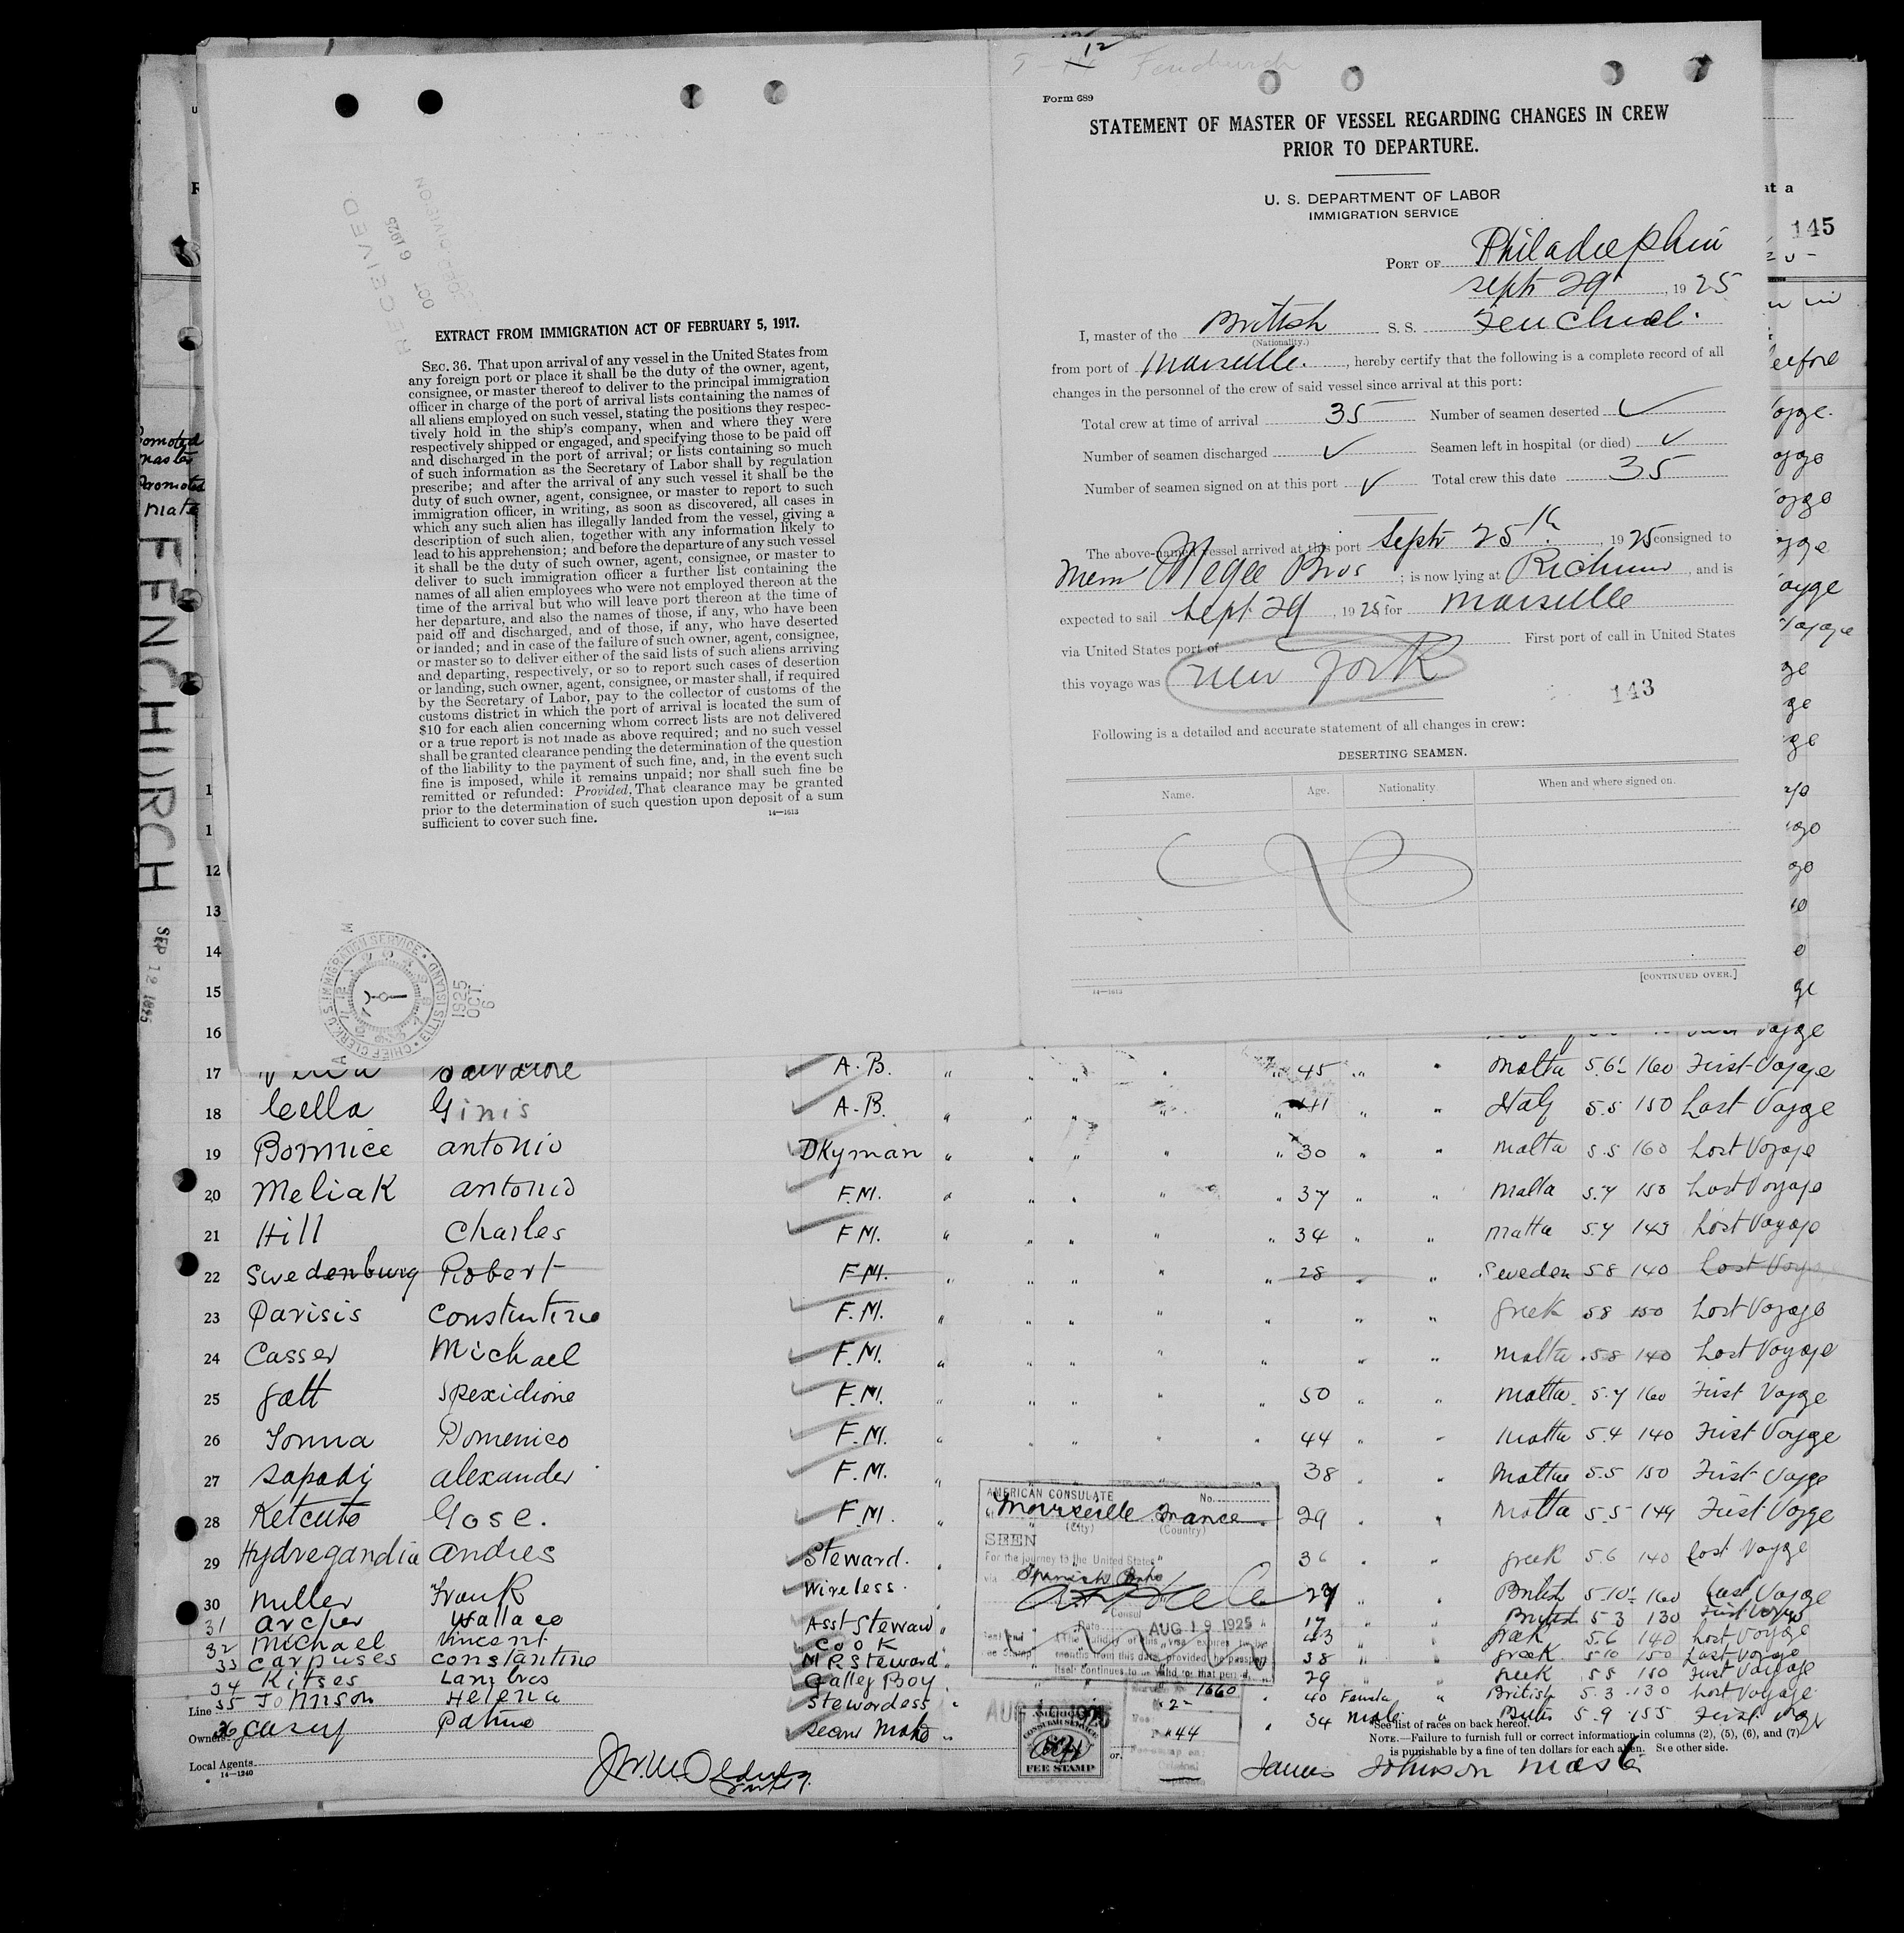 Form 689
STATEMENT OF MASTER OF VESSEL REGARDING CHANGES IN CREW
PRIOR TO DEPARTURE.
U. S. DEPARTMENT OF LABOR
IMMIGRATION SERVICE
PORT OF Philadelphia
Sept 29, 1925
I, master of the British S. S.
(Nationality.)
from port of Marseille., hereby certify that the following is a complete record of all
changes in the personnel of the crew of said vessel since arrival at this port:
Total crew at time of arrival 35 Number of seamen deserted ✓
Number of seamen discharged ✓ Seamen left in hospital (or died) ✓
Number of seamen signed on at this port ✓ Total crew this date 35
The above-named vessel arrived at this port Sept 25th, 1925 consigned to
Bros; is now lying at, and is
expected to sail Sept 29, 1925 for Marseille
via United States port of First port of call in United States
this voyage was New York
143
Following is a detailed and accurate statement of all changes in crew:
DESERTING SEAMEN.
Name. Age. Nationality. When and where signed on.
[CONTINUED OVER.]
14—1613
RECEIVED
OCT 6 1925
EXTRACT FROM IMMIGRATION ACT OF FEBRUARY 5, 1917.
SEC. 36. That upon arrival of any vessel in the United States from
any foreign port or place it shall be the duty of the owner, agent,
consignee, or master thereof to deliver to the principal immigration
officer in charge of the port of arrival lists containing the names of
all aliens employed on such vessel, stating the positions they respec-
tively hold in the ship's company, when and where they were
respectively shipped or engaged, and specifying those to be paid off
and discharged in the port of arrival; or lists containing so much
of such information as the Secretary of Labor shall by regulation
prescribe; and after the arrival of any such vessel it shall be the
duty of such owner, agent, consignee, or master to report to such
immigration officer, in writing, as soon as discovered, all cases in
which any such alien has illegally landed from the vessel, giving a
description of such alien, together with any information likely to
lead to his apprehension; and before the departure of any such vessel
it shall be the duty of such owner, agent, consignee, or master to
deliver to such immigration officer a further list containing the
names of all alien employees who were not employed thereon at the
time of the arrival but who will leave port thereon at the time of
her departure, and also the names of those, if any, who have been
paid off and discharged, and of those, if any, who have deserted
or landed; and in case of the failure of such owner, agent, consignee,
or master so to deliver either of the said lists of such aliens arriving
and departing, respectively, or so to report such cases of desertion
or landing, such owner, agent, consignee, or master shall, if required
by the Secretary of Labor, pay to the collector of customs of the
customs district in which the port of arrival is located the sum of
$10 for each alien concerning whom correct lists are not delivered
or a true report is not made as above required; and no such vessel
shall be granted clearance pending the determination of the question
of the liability to the payment of such fine, and, in the event such
fine is imposed, while it remains unpaid; nor shall such fine be
remitted or refunded: Provided, That clearance may be granted
prior to the determination of such question upon deposit of a sum
sufficient to cover such fine.
14—1613
CHIEF CLERK, U.S. IMMIGRATION SERVICE • ELLIS ISLAND
1925 OCT 6
FENCHURCH
SEP 12 1925
145
12
13
14
15
16
17 A.B. 45 Malta 160 First Voyage
18 Cella Ginis A.B. Italy 5.5 150 Last Voyage
19 Bonnice Antonio DKyman 30 Malta 5.5 160 Last Voyage
20 Meliak Antonio F.M. 37 Malta 5.7 150 Last Voyage
21 Hill Charles F.M. 34 Malta 5.7 143 Last Voyage
22 Swedenburg Robert F.M. 28 Sweden 58 140 Last Voyage
23 Parisis Constintino F.M. Greek 58 150 Last Voyage
24 Casser Michael F.M. Malta 58 140 Last Voyage
25 Gatt Spexidione F.M. 50 Malta 5.7 160 First Voyage
26 Domenico F.M. 44 Malta 5.4 140 First Voyage
27 Sapadi Alexander F.M. 38 Malta 5.5 150 First Voyage
28 Ketcuto Gose. F.M. 29 Malta 5.5 149 First Voyage
29 Hydregandia Andres Steward. 36 Greek 5.6 140 Last Voyage
30 Miller Frank Wireless. British 160 Last Voyage
31 Archer Wallace Asst Steward 17 British 5 3 130 First Voyage
32 Michael Vincent Cook 43 Greek 5.6 140 Last Voyage
33 Carpuses Constantine M R Steward 38 Greek 5 10 150 Last Voyage
34 Kitses Lambros Galley Boy 29 Greek 5 5 150 First Voyage
35 Johnson Helena Stewardess 40 Female British 5.3 130 Last Voyage
36 Casey Second Mate 34 Male 5.9 155 First Voyage
AMERICAN CONSULATE No.
Marseille France
(City) (Country)
SEEN
For the journey to the United States
via Spanish Ports
Consul
Date AUG 19 1925
months from this date, provided the passport
itself continues to be valid for that period.
1660
FEE STAMP
Line
Owners
Local Agents
14—1240
See list of races on back hereof.
NOTE.—Failure to furnish full or correct information in columns (2), (5), (6), and (7)
is punishable by a fine of ten dollars for each alien. See other side.
James Johnson Master